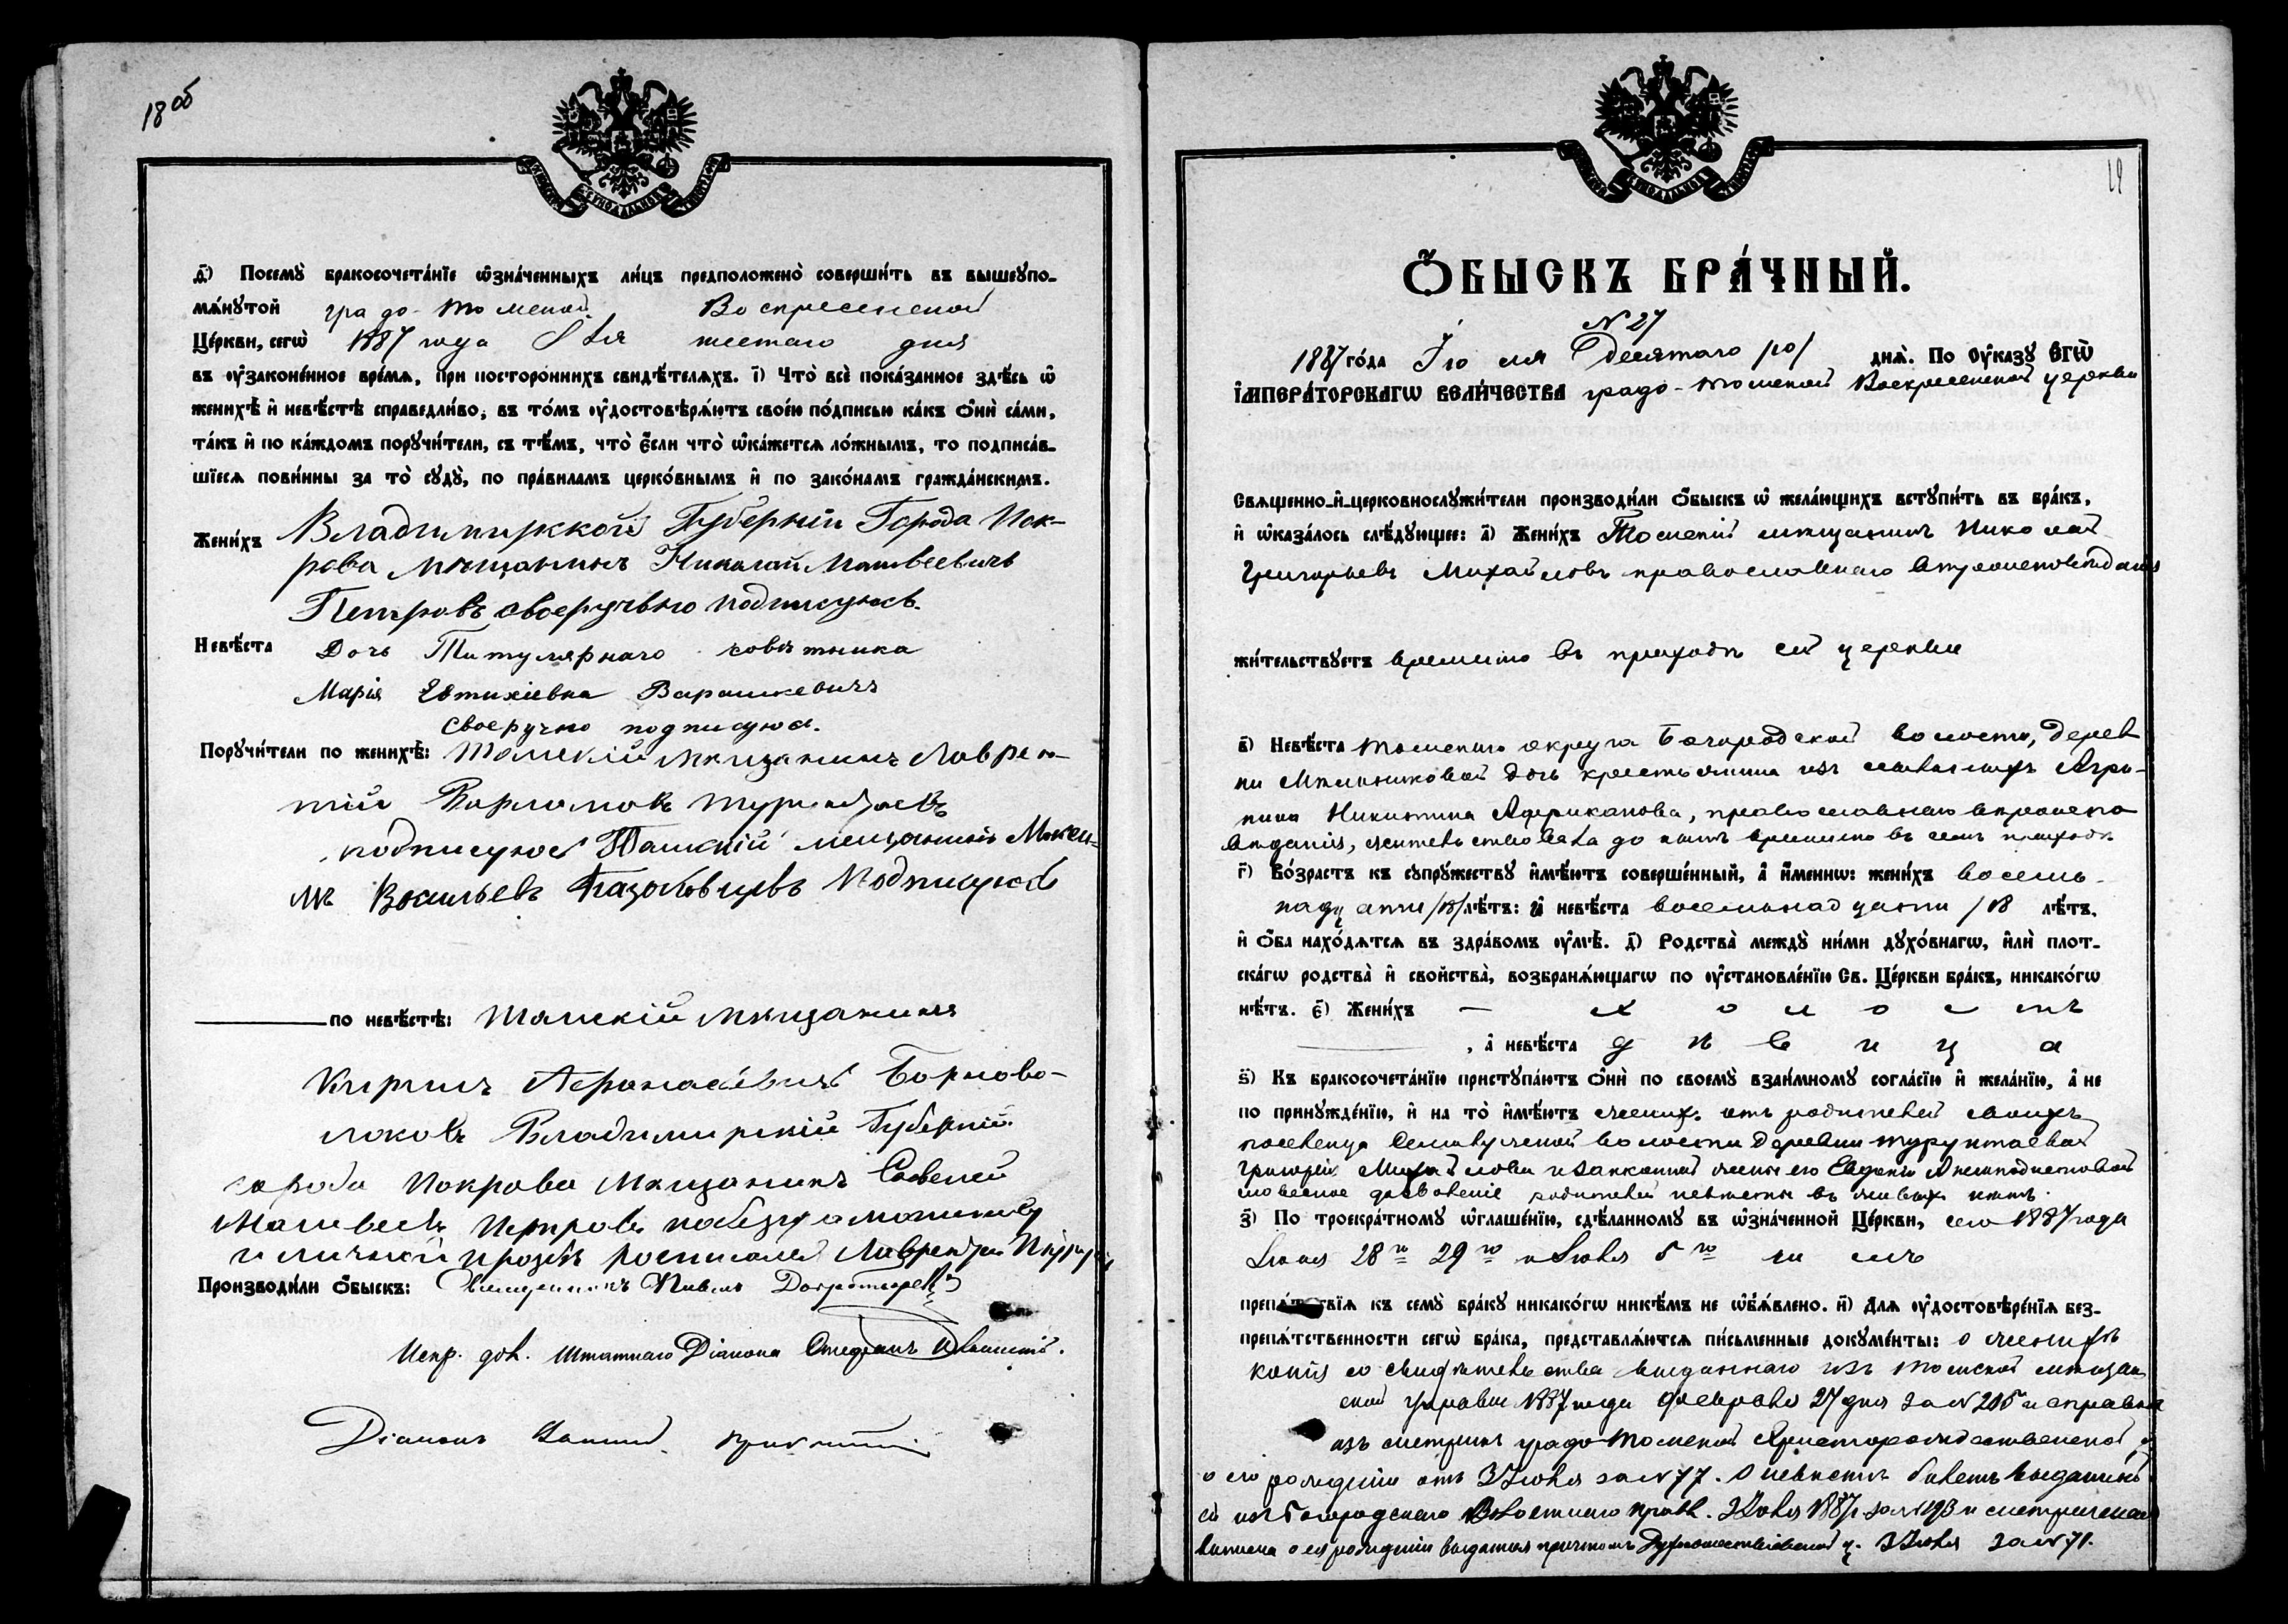 18 об
д҃) Посемꙋ̀ бракосочета́нїе ѡ҆зна́ченныхъ ли́цъ предположено̀ соверши́ть въ вышеꙋпо-
мѧ́нꙋтой градо-Томской Воскресенской
Це́ркви, сегѡ̀ 1887 года дня
въ ᲂу҆законе́нное вре́мѧ, при посторо́ннихъ свидѣ́телѧхъ. і҃) Что̀ всѐ пока́занное здѣ́сь ѡ҆
женихѣ̀ и҆ невѣ́стѣ справедли́во, въ то́мъ ᲂу҆достовѣрѧ́ютъ свое́ю по́дписью ка́къ ѻ҆нѝ са́ми,
та́къ и҆ по ка́ждомъ порꙋчи́тели, съ тѣ́мъ, что̀ є҆́сли что̀ ѡ҆ка́жетсѧ ло́жнымъ, то подписа́в-
шїесѧ пови́нны за то̀ сꙋдꙋ̀, по пра́виламъ церко́внымъ и҆ по зако́намъ гражда́нскимъ.
Жени́хъ Владимирской Губернiи Города Пок-
рова мѣщанинъ Николай Матвеевичъ
Петровъ своеручьно подписуюсь.
Невѣ́ста Дочь Титулярнаго совѣтника
Марія Евтихіевна Варашкевичъ
своеручно подписуюсь.
Порꙋчи́тели по женихѣ̀: Томскій мѣщанинъ Лаврен-
тій Варламовъ
подписуюсь Томскій мещанинъ
Васильевъ Подписуюсь
по невѣ́стѣ: Томскій мѣщанинъ
Кирилъ Афонасьевичъ Борново-
локовъ Владимирскій Губернiй
города Покрова мѣщанинъ Савелей
Матвевъ Петровъ
и личной прозбѣ росписался
Производи́ли ѻ҆́быскъ: Священникъ Павелъ
Испр. дол. Штатнаго Діакона Стефанъ
Діаконъ
19
Ѻ҆́БЫСКЪ БРА́ЧНЫЙ.
N 27
1887 го́да Іюля Десятаго /10/ днѧ̀. По Оу҆ка́зꙋ Єгѡ̀
І҆мпера́торскагѡ вели́чества градо-Томской Воскресенской церкви
Свѧще́нно-и҆-церковнослꙋжи́тели производи́ли ѻ҆́быскъ ѡ҆ жела́ющихъ встꙋпи́ть въ бра́къ,
и҆ ѡ҆каза́лось слѣ́дꙋющее: а҃) Жени́хъ Томскій мѣщанинъ Николай
Григорьевъ Михайловъ православнаго вѣроисповѣданія
жи́тельствꙋетъ временно въ приходѣ сей церкви
в҃) Невѣ́ста Томскаго округа Богородской волости, Дерев
ни Мельниковой дочь крестьянина изъ ссыльныхъ Агри-
пина Никитина Африканова, православнаго вѣроиспо
вѣданія, жительствовала до нынѣ временно въ семъ приходѣ
г҃) Во́зрастъ къ сꙋпрꙋ́жествꙋ и҆мѣ́ютъ соверше́нный, а҆ и҆́менно: жени́хъ восем-
надцати /18/ лѣ́тъ: и҆ невѣ́ста восемнадцати /18 лѣ́тъ,
и҆ ѻ҆́ба нахо́дѧтсѧ въ здра́вомъ ᲂу҆мѣ̀. д҃) Родства̀ междꙋ̀ ни́ми дꙋхо́внагѡ, и҆лѝ плот-
ска́гѡ родства̀ и҆ сво́йства, возбранѧ́ющагѡ по ᲂу҆становле́нїю Св. Це́ркви бра́къ, никако́гѡ
нѣ́тъ. є҃) Жени́хъ — х о л о с тъ
, а҆ невѣ́ста д ѣ в и ц а
ѕ҃) Къ бракосочета́нїю пристꙋпа́ютъ ѻ҆нѝ по своемꙋ̀ взаи́мномꙋ согла́сїю и҆ жела́нїю, а҆ не
по принꙋжде́нїю, и҆ на то̀ и҆мѣ́ютъ женихъ отъ родителей своихъ
поселенца Семилужской волости Деревни Турунтаевой
Григорія Михайлова и законной жены его Евдокіи
словесное дозволеніе родителей невѣсты въ живыхъ нѣтъ.
з҃) По троекра́тномꙋ ѡ҆глаше́нїю, сдѣ́ланномꙋ въ ѡ҆зна́ченной Це́ркви, сего 1887 года
Іюня 28го 29го и Іюля 5го чи слъ
препѧ́тствїѧ къ семꙋ̀ бра́кꙋ никако́гѡ никѣ́мъ не ѡ҆б̾ѧ́влено. и҃) Длѧ ᲂу҆достовѣре́нїѧ без-
препѧ́тственности сегѡ̀ бра́ка, представлѧ́ютсѧ пи́сьменные докꙋме́нты: о женихѣ
копія со свидѣтельства выданнаго изъ Томской мѣщан
ской управы 1887 года февраля 27 дня за N 205 и справка
изъ метрикъ градо Томской Христорождественской ц
о его рожденіи отъ 3 Іюля за N 77. О невѣстѣ билетъ выданный
ей изъ Богородскаго Волостнаго Правл. 2 Іюля 1887 г. за N 193 и метрическая
выписка о ея рожденіи выданная причтомъ Духосошественской ц. 3 Іюля за N 71.